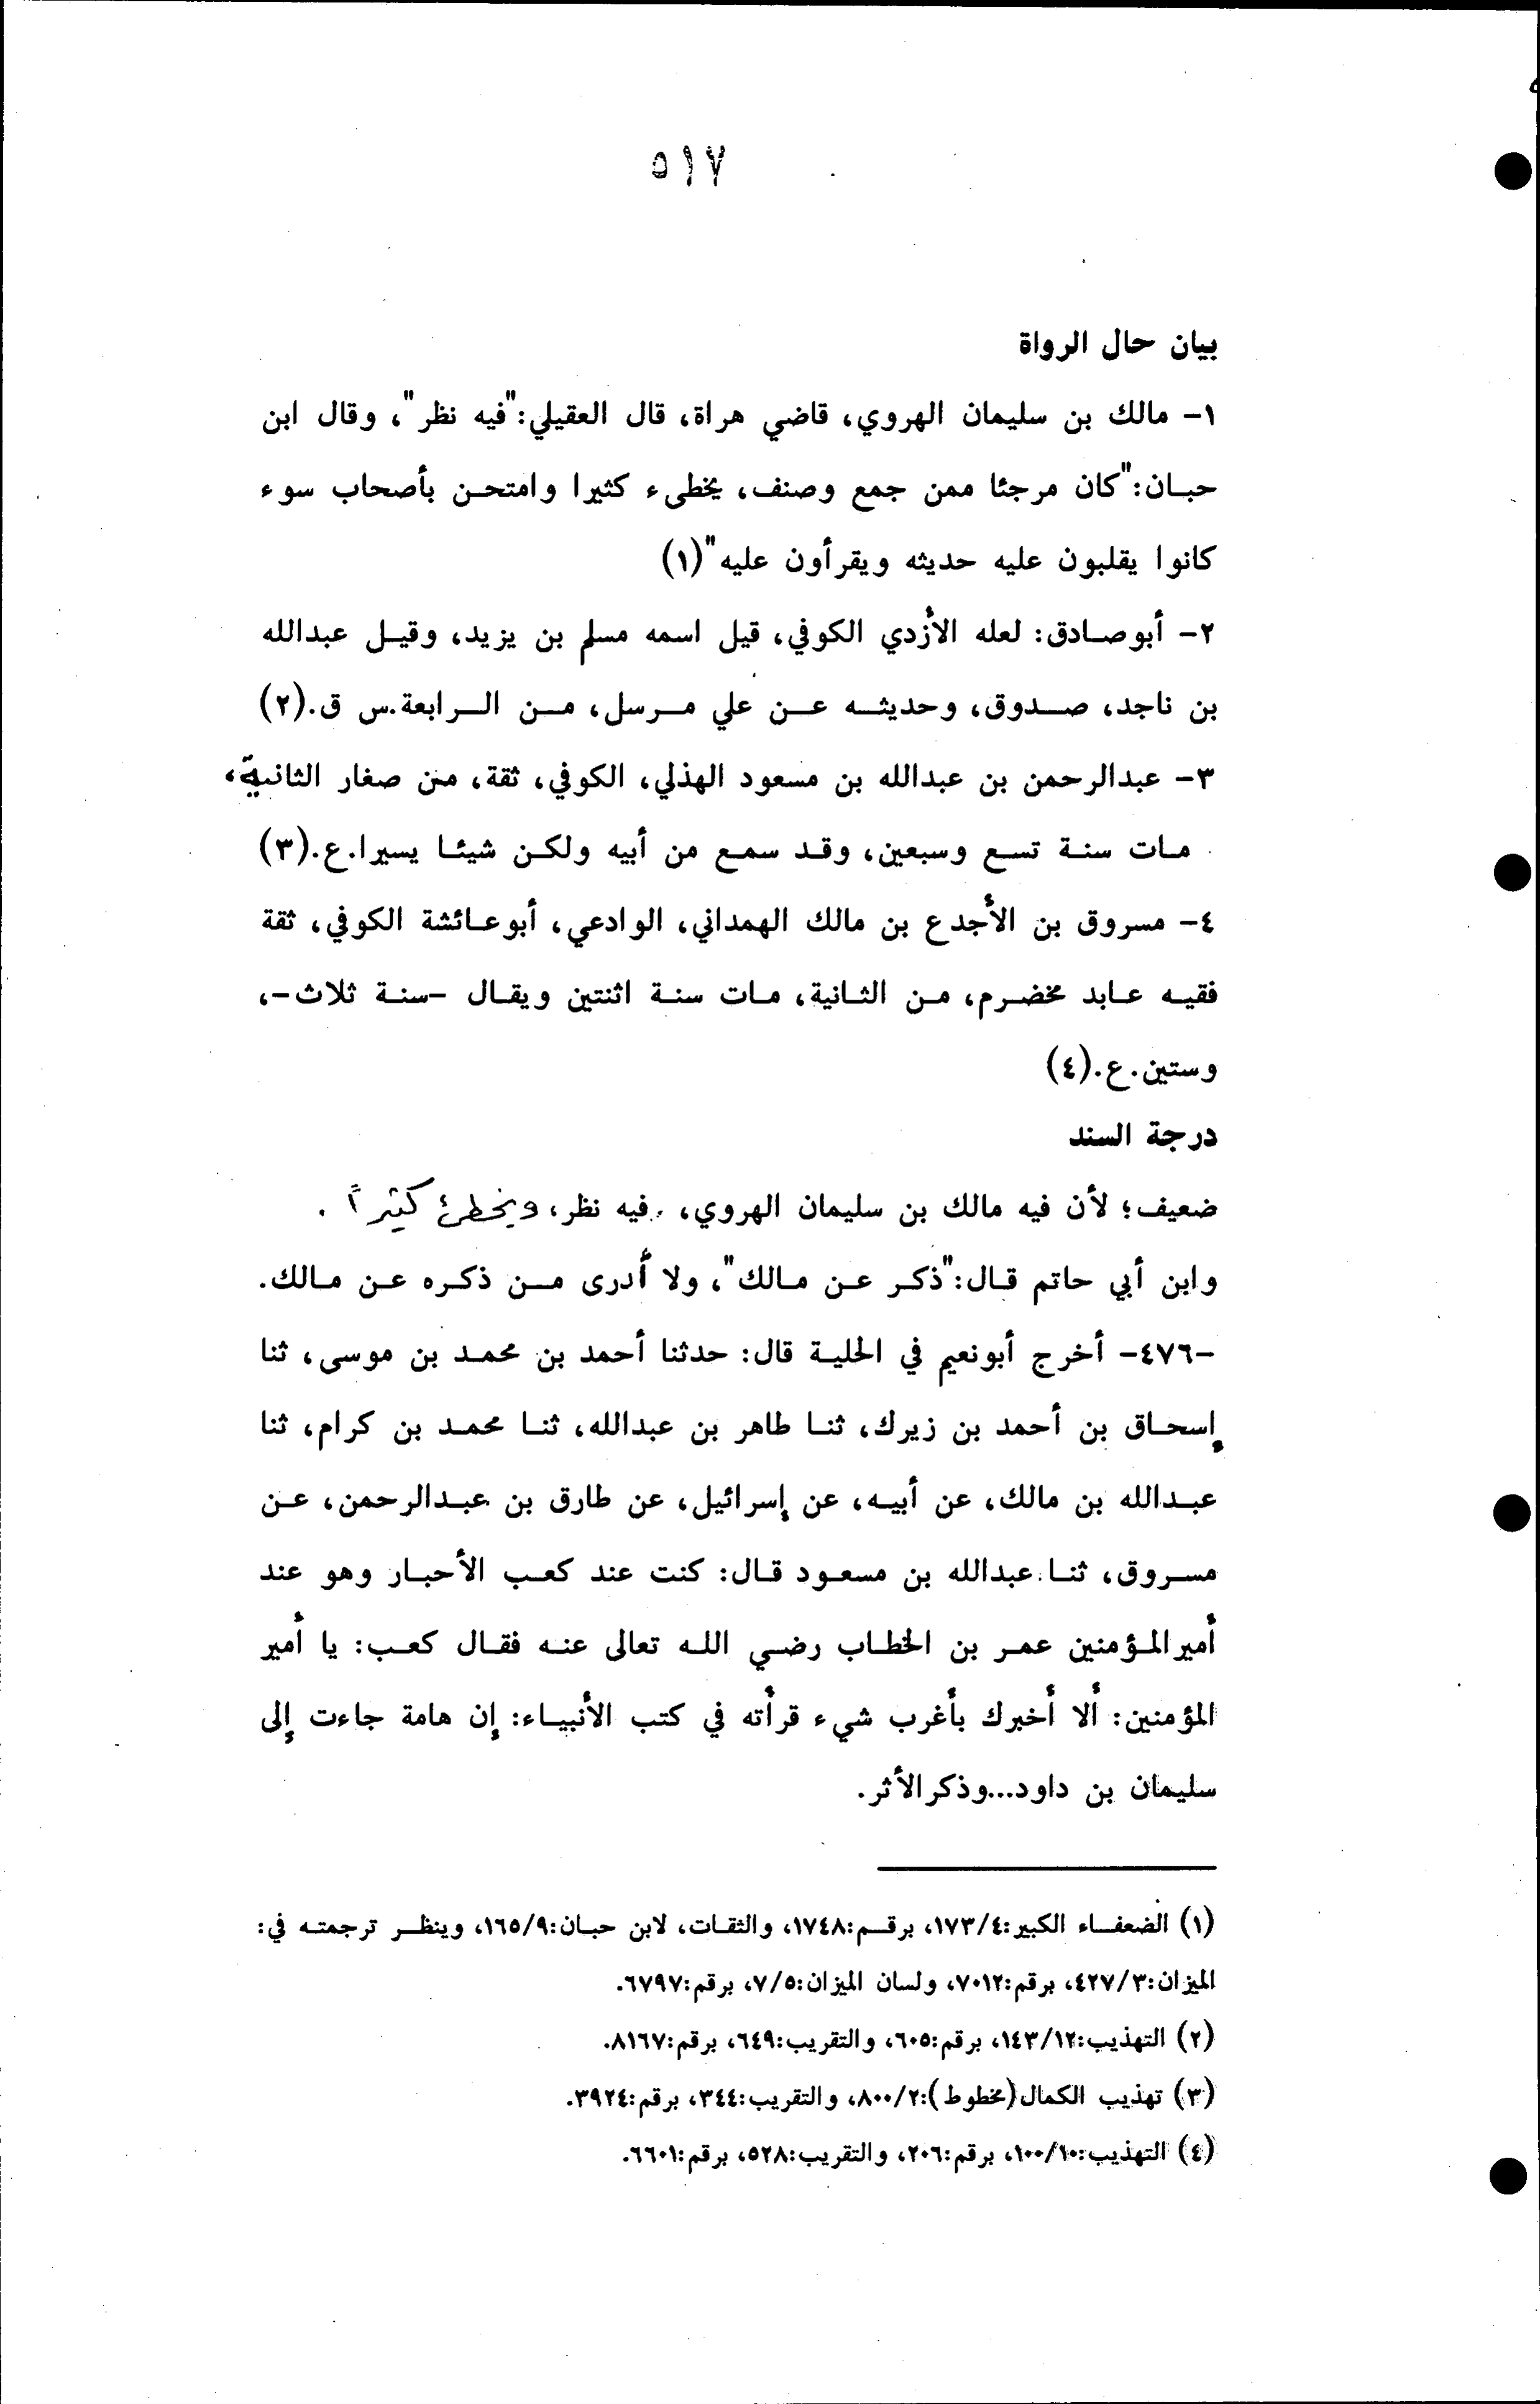 ٥١٧
بيان حال الرواة
١- مالك بن سليمان الهروي، قاضي هراة، قال العقيلي:"فيه نظر"، وقال ابن
حبـان:"كان مرجئا ممن جمع وصنف، يخطىء كثيرا وامتحـن بأصحاب سوء
كانوا يقلبون عليه حديثه ويقرأون عليه"(١)
٢- أبوصـادق: لعله الأزدي الكوفي، قيل اسمه مسلم بن يزيد، وقيـل عبدالله
بن ناجد، صـدوق، وحديثـه عـن علي مـرسل، مـن الـرابعة.س ق.(٢)
٣- عبدالرحمن بن عبدالله بن مسعود الهذلي، الكوفي، ثقة، من صغار الثانية،
مـات سنـة تسـع وسبعين، وقـد سمـع من أبيه ولكـن شيئـا يسيرا.ع.(٣)
٤- مسروق بن الأجدع بن مالك الهمداني، الوادعي، أبوعـائشة الكوفي، ثقة
فقيـه عـابد مخضـرم، مـن الثـانية، مـات سنـة اثنتين ويقـال -سنـة ثلاث-،
وستين.ع.(٤)
درجة السند
ضعيف؛ لأن فيه مالك بن سليمان الهروي، فيه نظر، ويخطئ كثيراً.
وابن أبي حاتم قـال:"ذكـر عـن مـالك"، ولا أدرى مـن ذكـره عـن مـالك.
-٤٧٦- أخرج أبونعيم في الحليـة قال: حدثنا أحمد بن محمـد بن موسى، ثنا
إسحـاق بن أحمد بن زيرك، ثنـا طاهر بن عبدالله، ثنـا محمـد بن كرام، ثنا
عبـدالله بن مالك، عن أبيـه، عن إسرائيل، عن طارق بن عبـدالرحمن، عـن
مسـروق، ثنـا عبدالله بن مسعـود قـال: كنت عند كعـب الأحبـار وهو عند
أميرالمـؤمنين عمـر بن الخطـاب رضـي اللـه تعالى عنـه فقـال كعـب: يا أمير
المؤمنين: ألا أخبرك بأغرب شيء قرأته في كتب الأنبيـاء: إن هامة جاءت إلى
سليمان بن داود...وذكرالأثر.
(١) الضعفـاء الكبير:١٧٣/٤، برقـم:١٧٤٨، والثقـات، لابن حبـان:١٦٥/٩، وينظـر ترجمتـه في:
الميزان:٤٢٧/٣، برقم:٧٠١٢، ولسان الميزان:٧/٥، برقم:٦٧٩٧.
(٢) التهذيب:١٤٣/١٢، برقم:٦٠٥، والتقريب:٦٤٩، برقم:٨١٦٧.
(٣) تهذيب الكمال(مخطوط):٨٠٠/٢، والتقريب:٣٤٤، برقم:٣٩٢٤.
(٤) التهذيب:١٠٠/١٠، برقم:٢٠٦، والتقريب:٥٢٨، برقم:٦٦٠١.